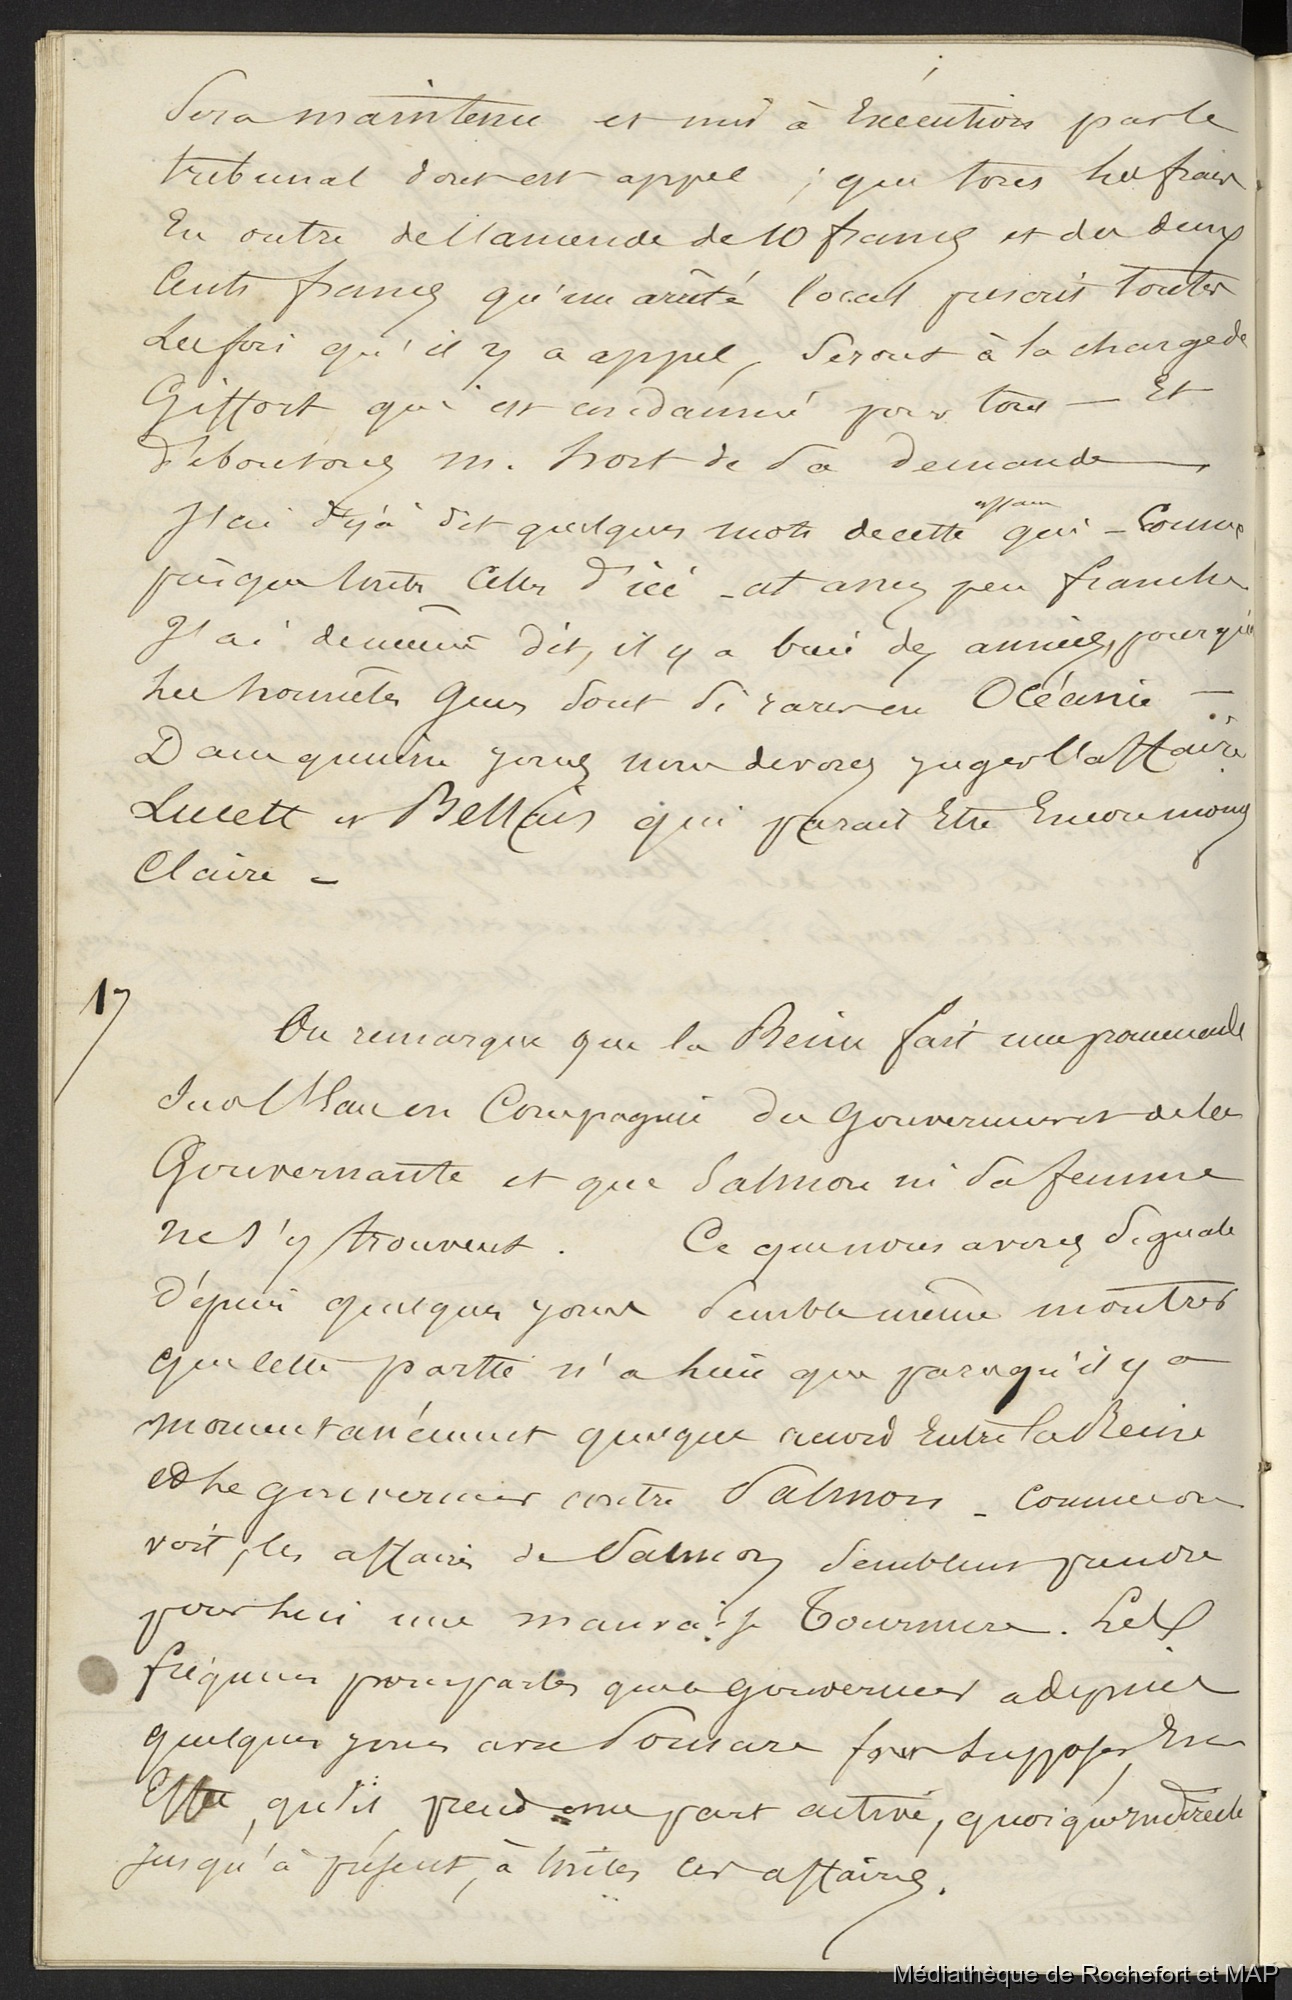 Sera maintenu et mis à Exécution par le
tribunal dont est appel ; que tous les frais
En outre de l'amende de 10 francs et des deux
Cents francs qu'un arrêté local prescrit toutes
Les fois qu'il y a appel, Seront à la charge de
Giffort qui est condamné pour tous — Et
déboutons M. hort de Sa demande —
J'ai déjà dit quelques mots de cette affaire qui - Comme
presque toutes Celles d'ici - est assez peu franche
J'ai de même dit, il y a bien des années, pourquoi
les honnêtes Gens Sont Si rares en Océanie —
Dans quinze jours nous devons juger l'affaire
Lucett et Bellais qui parait Etre Encore moins
Claire -
17
On remarque que la Reine fait une promenade
en Compagnie du Gouverneur et de la
Gouvernante et que Salmon ni Sa femme
ne S'y trouvent. Ce que nous avons Signalé
dépuis quelques jours Semble même montrer
que cette partie n'a lieu que parcequ'il y a
momentanément quelque accord Entre la Reine
et le gouverneur contre Salmon - comme on
voit, les affaires de Salmon Semblent prendre
pour lui une mauvaise Tournure. Les
fréquens pourparlers que le Gouverneur a depuis
quelques jours avec font Supposer, En
Effet, qu'il prend une part active, quoique indirecte
jusqu'à présent, à toutes ces affaires.
Médiathèque de Rochefort et MAP